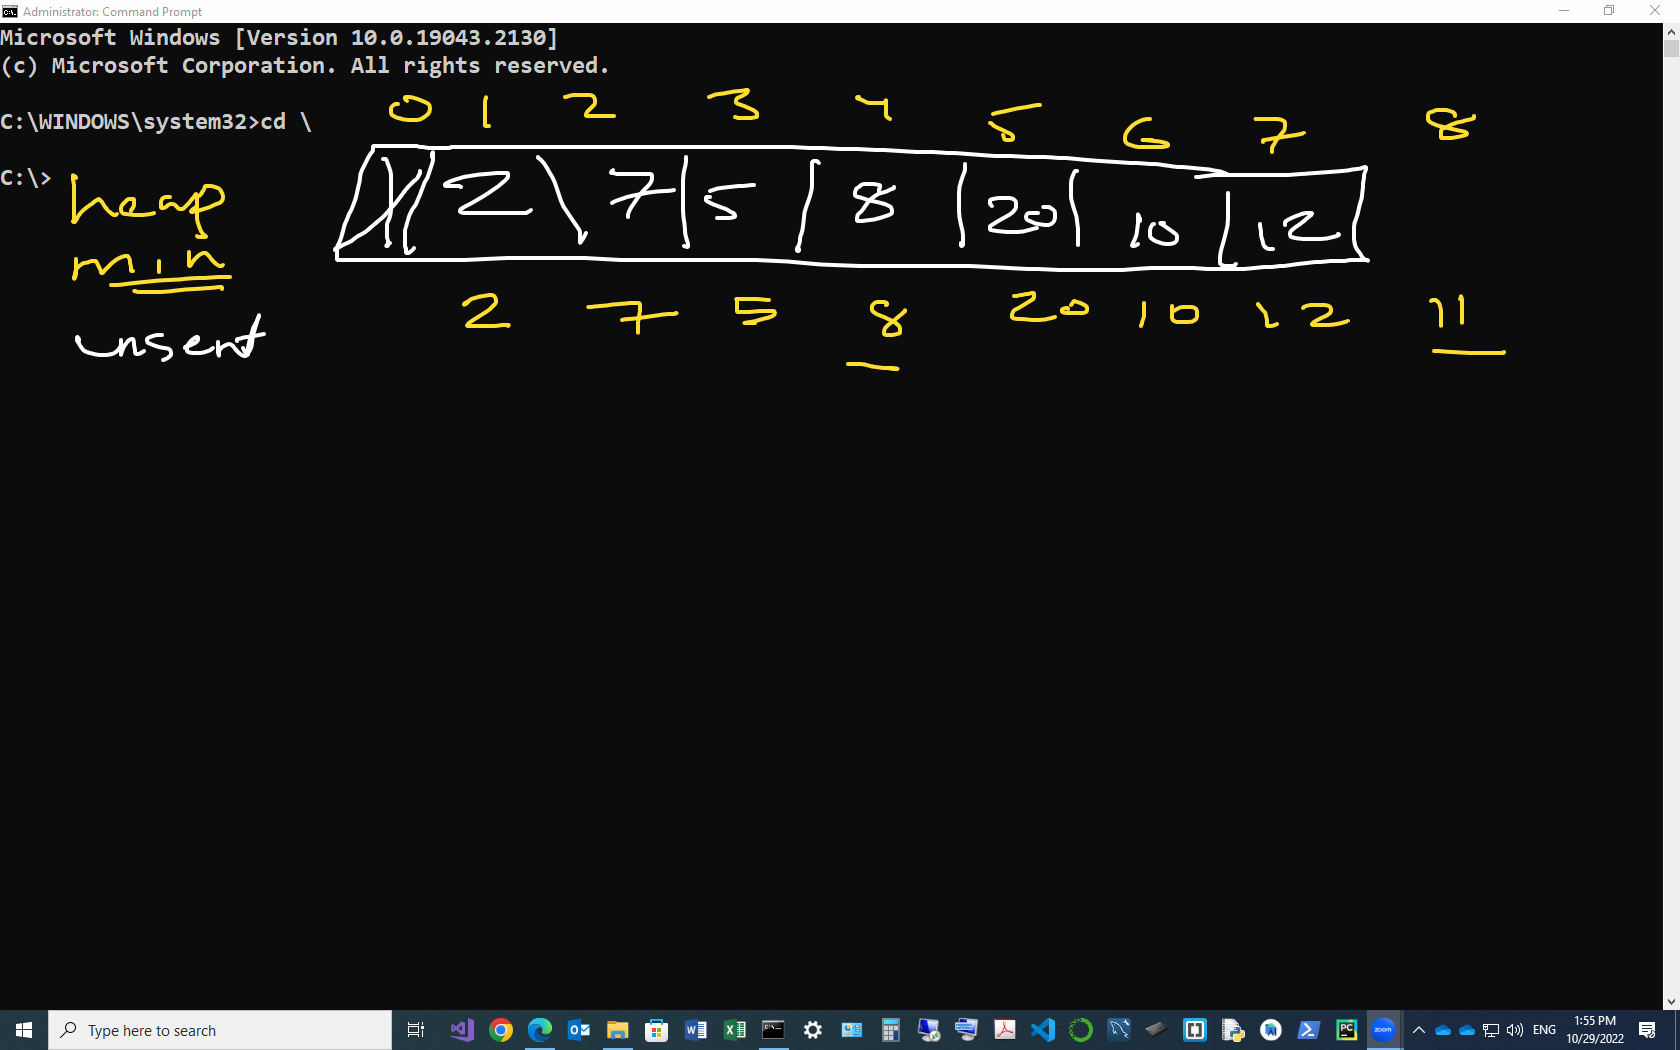 Administrator: Command Prompt
Microsoft Windows [Version 10.0.19043.2130]
(c) Microsoft Corporation. All rights reserved.
C:\WINDOWS\system32>cd \
C:\>
0 1 2 3 4 5 6 7 8
2 7 5 8 20 10 12
heap
min
2 7 5 8 20 10 12 11
insert
Type here to search
ENG
1:55 PM
10/29/2022